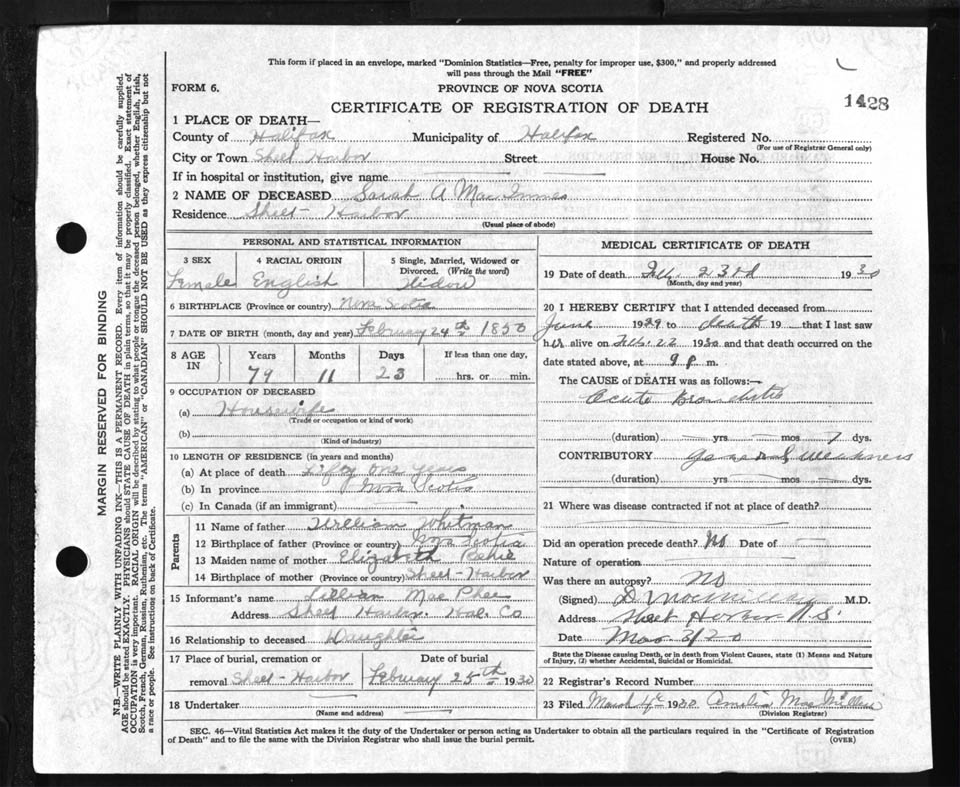 This form if placed in an envelope, marked "Dominion Statistics—Free, penalty for improper use, $300," and properly addressed
will pass through the Mail "FREE"
FORM 6.
PROVINCE OF NOVA SCOTIA
CERTIFICATE OF REGISTRATION OF DEATH
1428
1 PLACE OF DEATH—
County of Halifax Municipality of Halifax Registered No.
(For use of Registrar General only)
City or Town Sheet Harbor Street House No.
If in hospital or institution, give name
2 NAME OF DECEASED Sarah A MacInnes
Residence Sheet-Harbor
(Usual place of abode)
PERSONAL AND STATISTICAL INFORMATION
3 SEX 4 RACIAL ORIGIN 5 Single, Married, Widowed or Divorced. (Write the word)
Female English Widow
6 BIRTHPLACE (Province or country) Nova Scotia
7 DATE OF BIRTH (month, day and year) February 24th 1850
8 AGE IN Years Months Days If less than one day,
79 11 23 hrs. or min.
9 OCCUPATION OF DECEASED
(a) Housewife
(Trade or occupation or kind of work)
(b)
(Kind of industry)
10 LENGTH OF RESIDENCE (in years and months)
(a) At place of death Fifty one years
(b) In province Nova Scotia
(c) In Canada (if an immigrant)
Parents
11 Name of father William Whitman
12 Birthplace of father (Province or country) Nova Scotia
13 Maiden name of mother Elizabeth
14 Birthplace of mother (Province or country) Sheet-Harbor
15 Informant's name Lillian MacPhee
Address Sheet Harbor Hal. Co
16 Relationship to deceased Daughter
17 Place of burial, cremation or Date of burial
removal Sheet-Harbor February 25th 1930
18 Undertaker
(Name and address)
MEDICAL CERTIFICATE OF DEATH
19 Date of death Feb. 23rd 1930
(Month, day and year)
20 I HEREBY CERTIFY that I attended deceased from
June 1929 to death 19 that I last saw
her alive on Feb. 22 1930 and that death occurred on the
date stated above, at 9 p. m.
The CAUSE of DEATH was as follows:—
Acute Bronchitis
(duration) yrs mos 7 dys.
CONTRIBUTORY General Weakness
(duration) yrs mos dys.
21 Where was disease contracted if not at place of death?
Did an operation precede death? No Date of
Nature of operation
Was there an autopsy? No
(Signed) D MacMillan M.D.
Address Sheet Harbor N.S.
Date Mar 3/20
State the Disease causing Death, or in death from Violent Causes, state (1) Means and Nature
of Injury, (2) whether Accidental, Suicidal or Homicidal.
22 Registrar's Record Number
23 Filed March 4th 1930 Amelia MacMillan
(Division Registrar)
SEC. 46—Vital Statistics Act makes it the duty of the Undertaker or person acting as Undertaker to obtain all the particulars required in the "Certificate of Registration
of Death" and to file the same with the Division Registrar who shall issue the burial permit. (OVER)
MARGIN RESERVED FOR BINDING
N.B.—WRITE PLAINLY WITH UNFADING INK—THIS IS A PERMANENT RECORD. Every item of information should be carefully supplied.
AGE should be stated EXACTLY. PHYSICIANS should STATE CAUSE OF DEATH in plain terms, so that it may be properly classified. Exact statement of
OCCUPATION is very important. RACIAL ORIGIN will be described by stating to what people or tongue the deceased person belonged, whether English, Irish,
Scotch, French, German, Russian, Ruthenian, etc. The terms "AMERICAN" or "CANADIAN" SHOULD NOT BE USED as they express citizenship but not
a race or people. See instructions on back of Certificate.